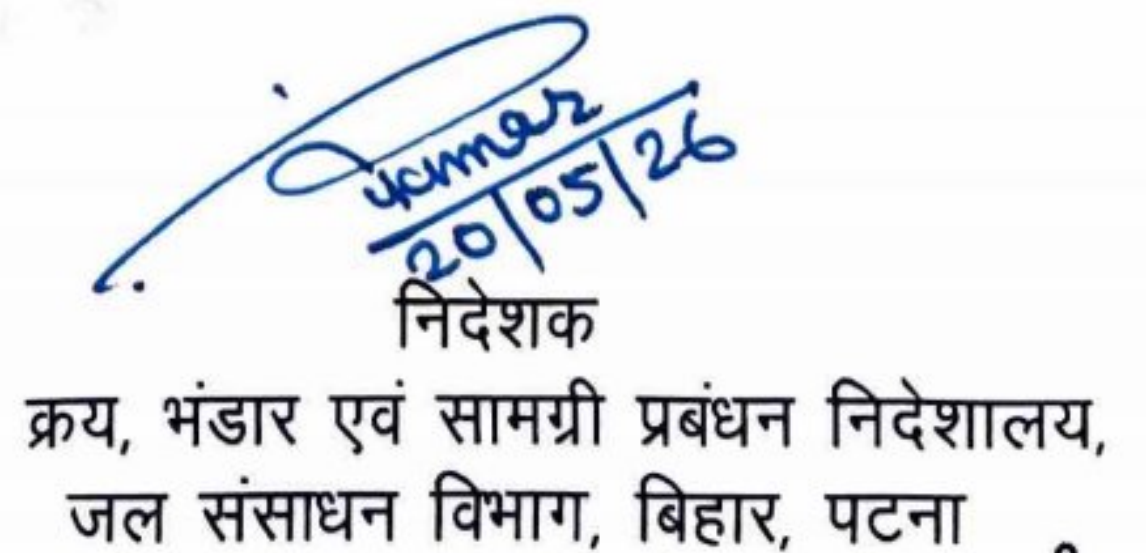 20/05/26
निदेशक
क्रय, भंडार एवं सामग्री प्रबंधन निदेशालय,
जल संसाधन विभाग, बिहार, पटना